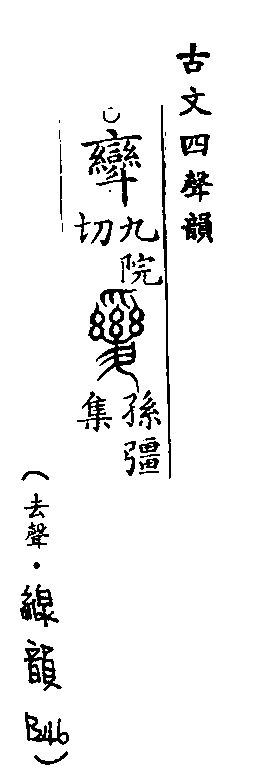 古文四聲韻
㪻
九院
切
孫彊
集
(去聲・線韻